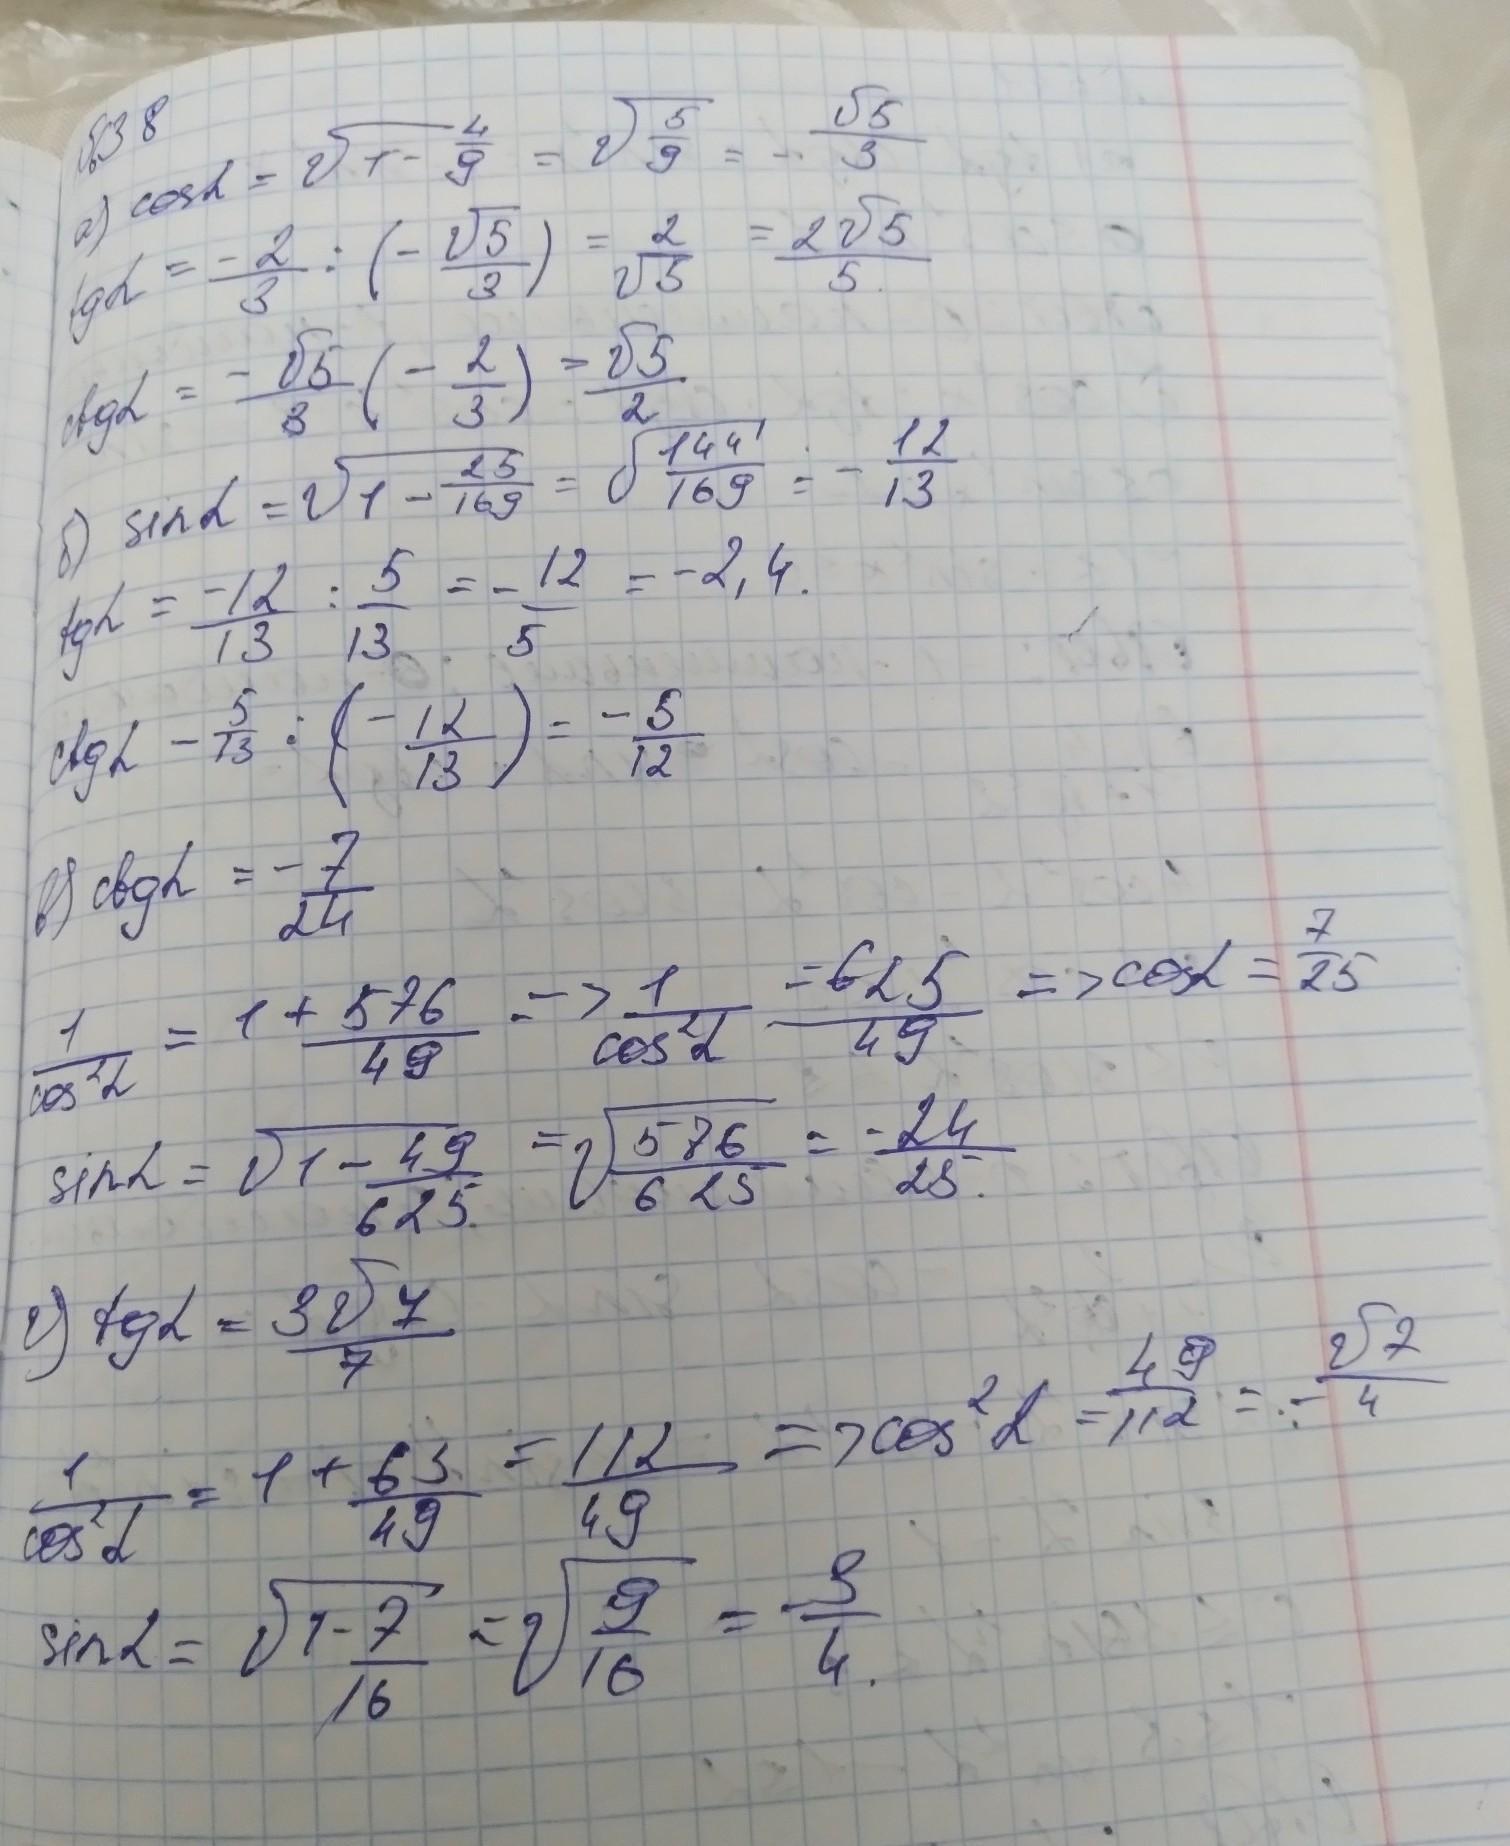 638
а) cosα = √(1 - 4/9) = √(5/9) = - √5/3
tgα = -2/3 : (- √5/3) = 2/√5 = 2√5/5.
ctgα = -√5/3 (- 2/3) = √5/2
б) sinα = √(1 - 25/169) = √(144/169) = - 12/13
tgα = -12/13 : 5/13 = - 12/5 = -2,4.
ctgα - 5/13 : (- 12/13) = - 5/12
в) ctgα = - 7/24
1/cos²α = 1 + 576/49 => 1/cos²α = 625/49 => cosα = 7/25
sinα = √(1 - 49/625) = √(576/625) = -24/25.
г) tgα = 3√7/7
1/cos²α = 1 + 63/49 = 112/49 => cos²α = 49/112 = - √7/4
sinα = √(1 - 7/16) = √(9/16) = -3/4.